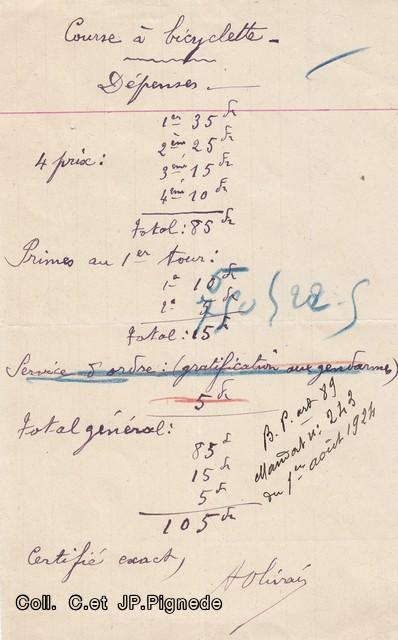 Course à bicyclette
Dépenses
4 prix :
1er 35 fr
2ème 25 fr
3ème 15 fr
4ème 10 fr
Total : 85 fr
Primes au 1er tour :
1a 10 fr
2a 5 fr
Total : 15 fr
Service d'ordre : (gratification aux gendarmes)
5 fr
Total général :
85 f
15 fr
5 fr
105 fr
B. P. art 89
Mandat n° 243
du 1er août 1924
Certifié exact,
Coll. C.et JP.Pignede